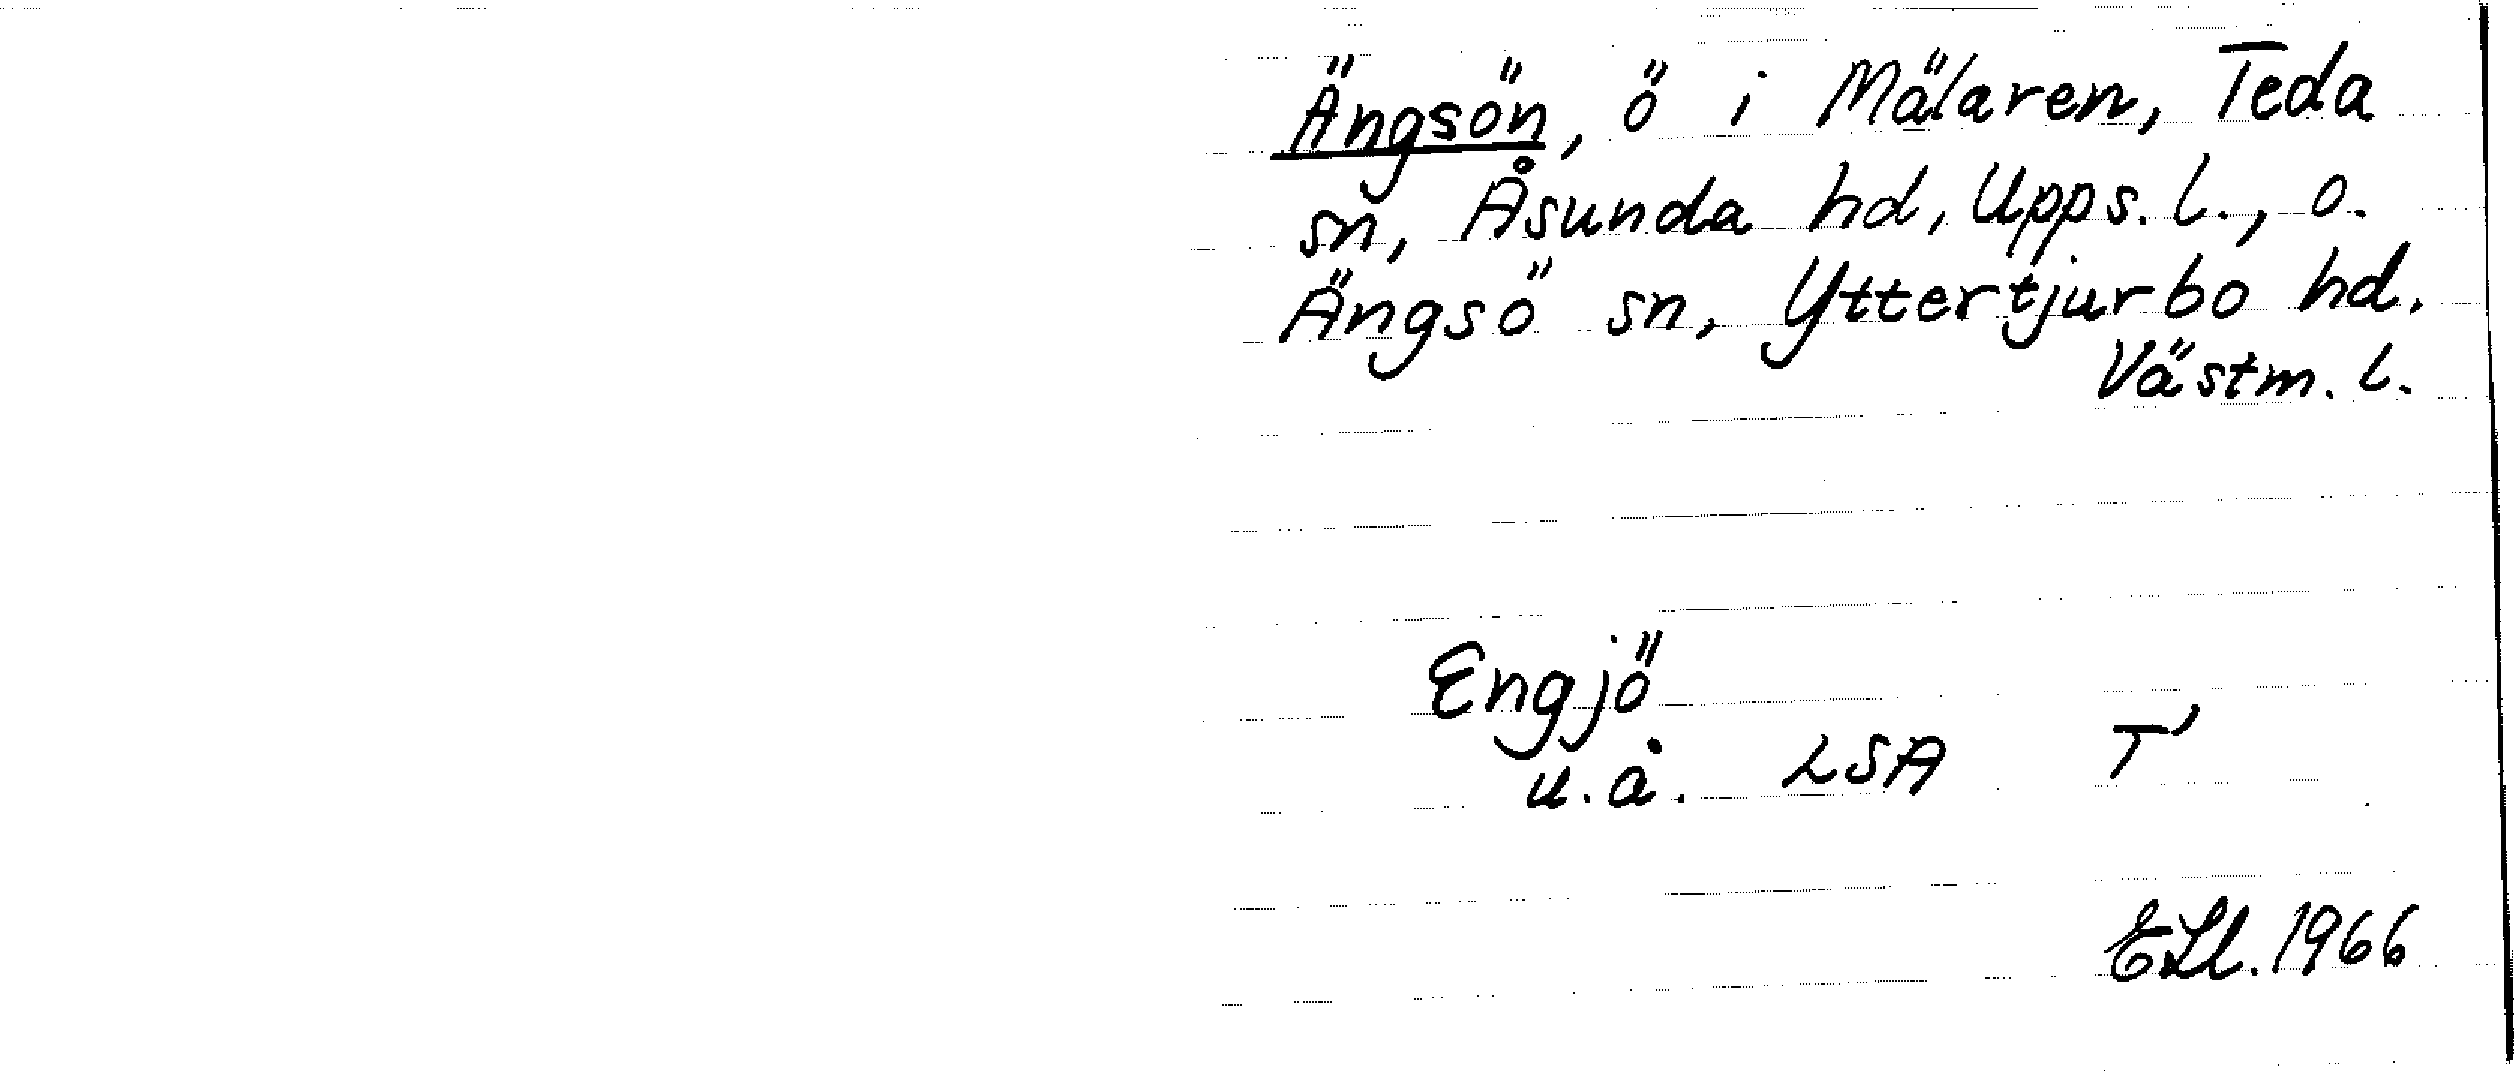 Ängsön, ö i Mälaren, Teda
sn, Åsunda hd, Upps. l., o.
Ängsö sn, Yttertjurbo hd.
Västm. l.
Engjö
u.å. LSA T'
ELl. 1966